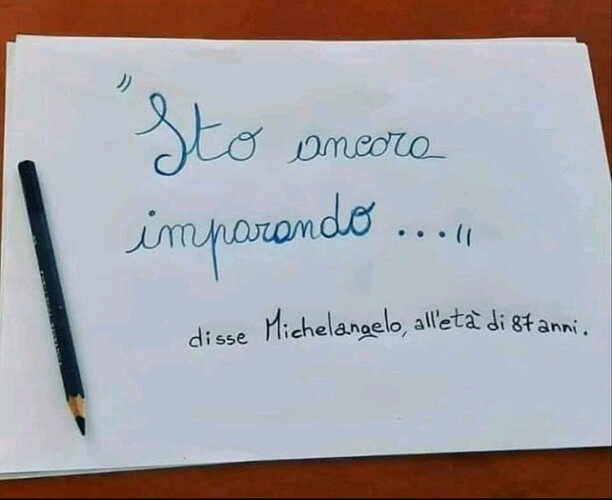 "Sto ancora
imparando ..."
disse Michelangelo, all'età di 87 anni.